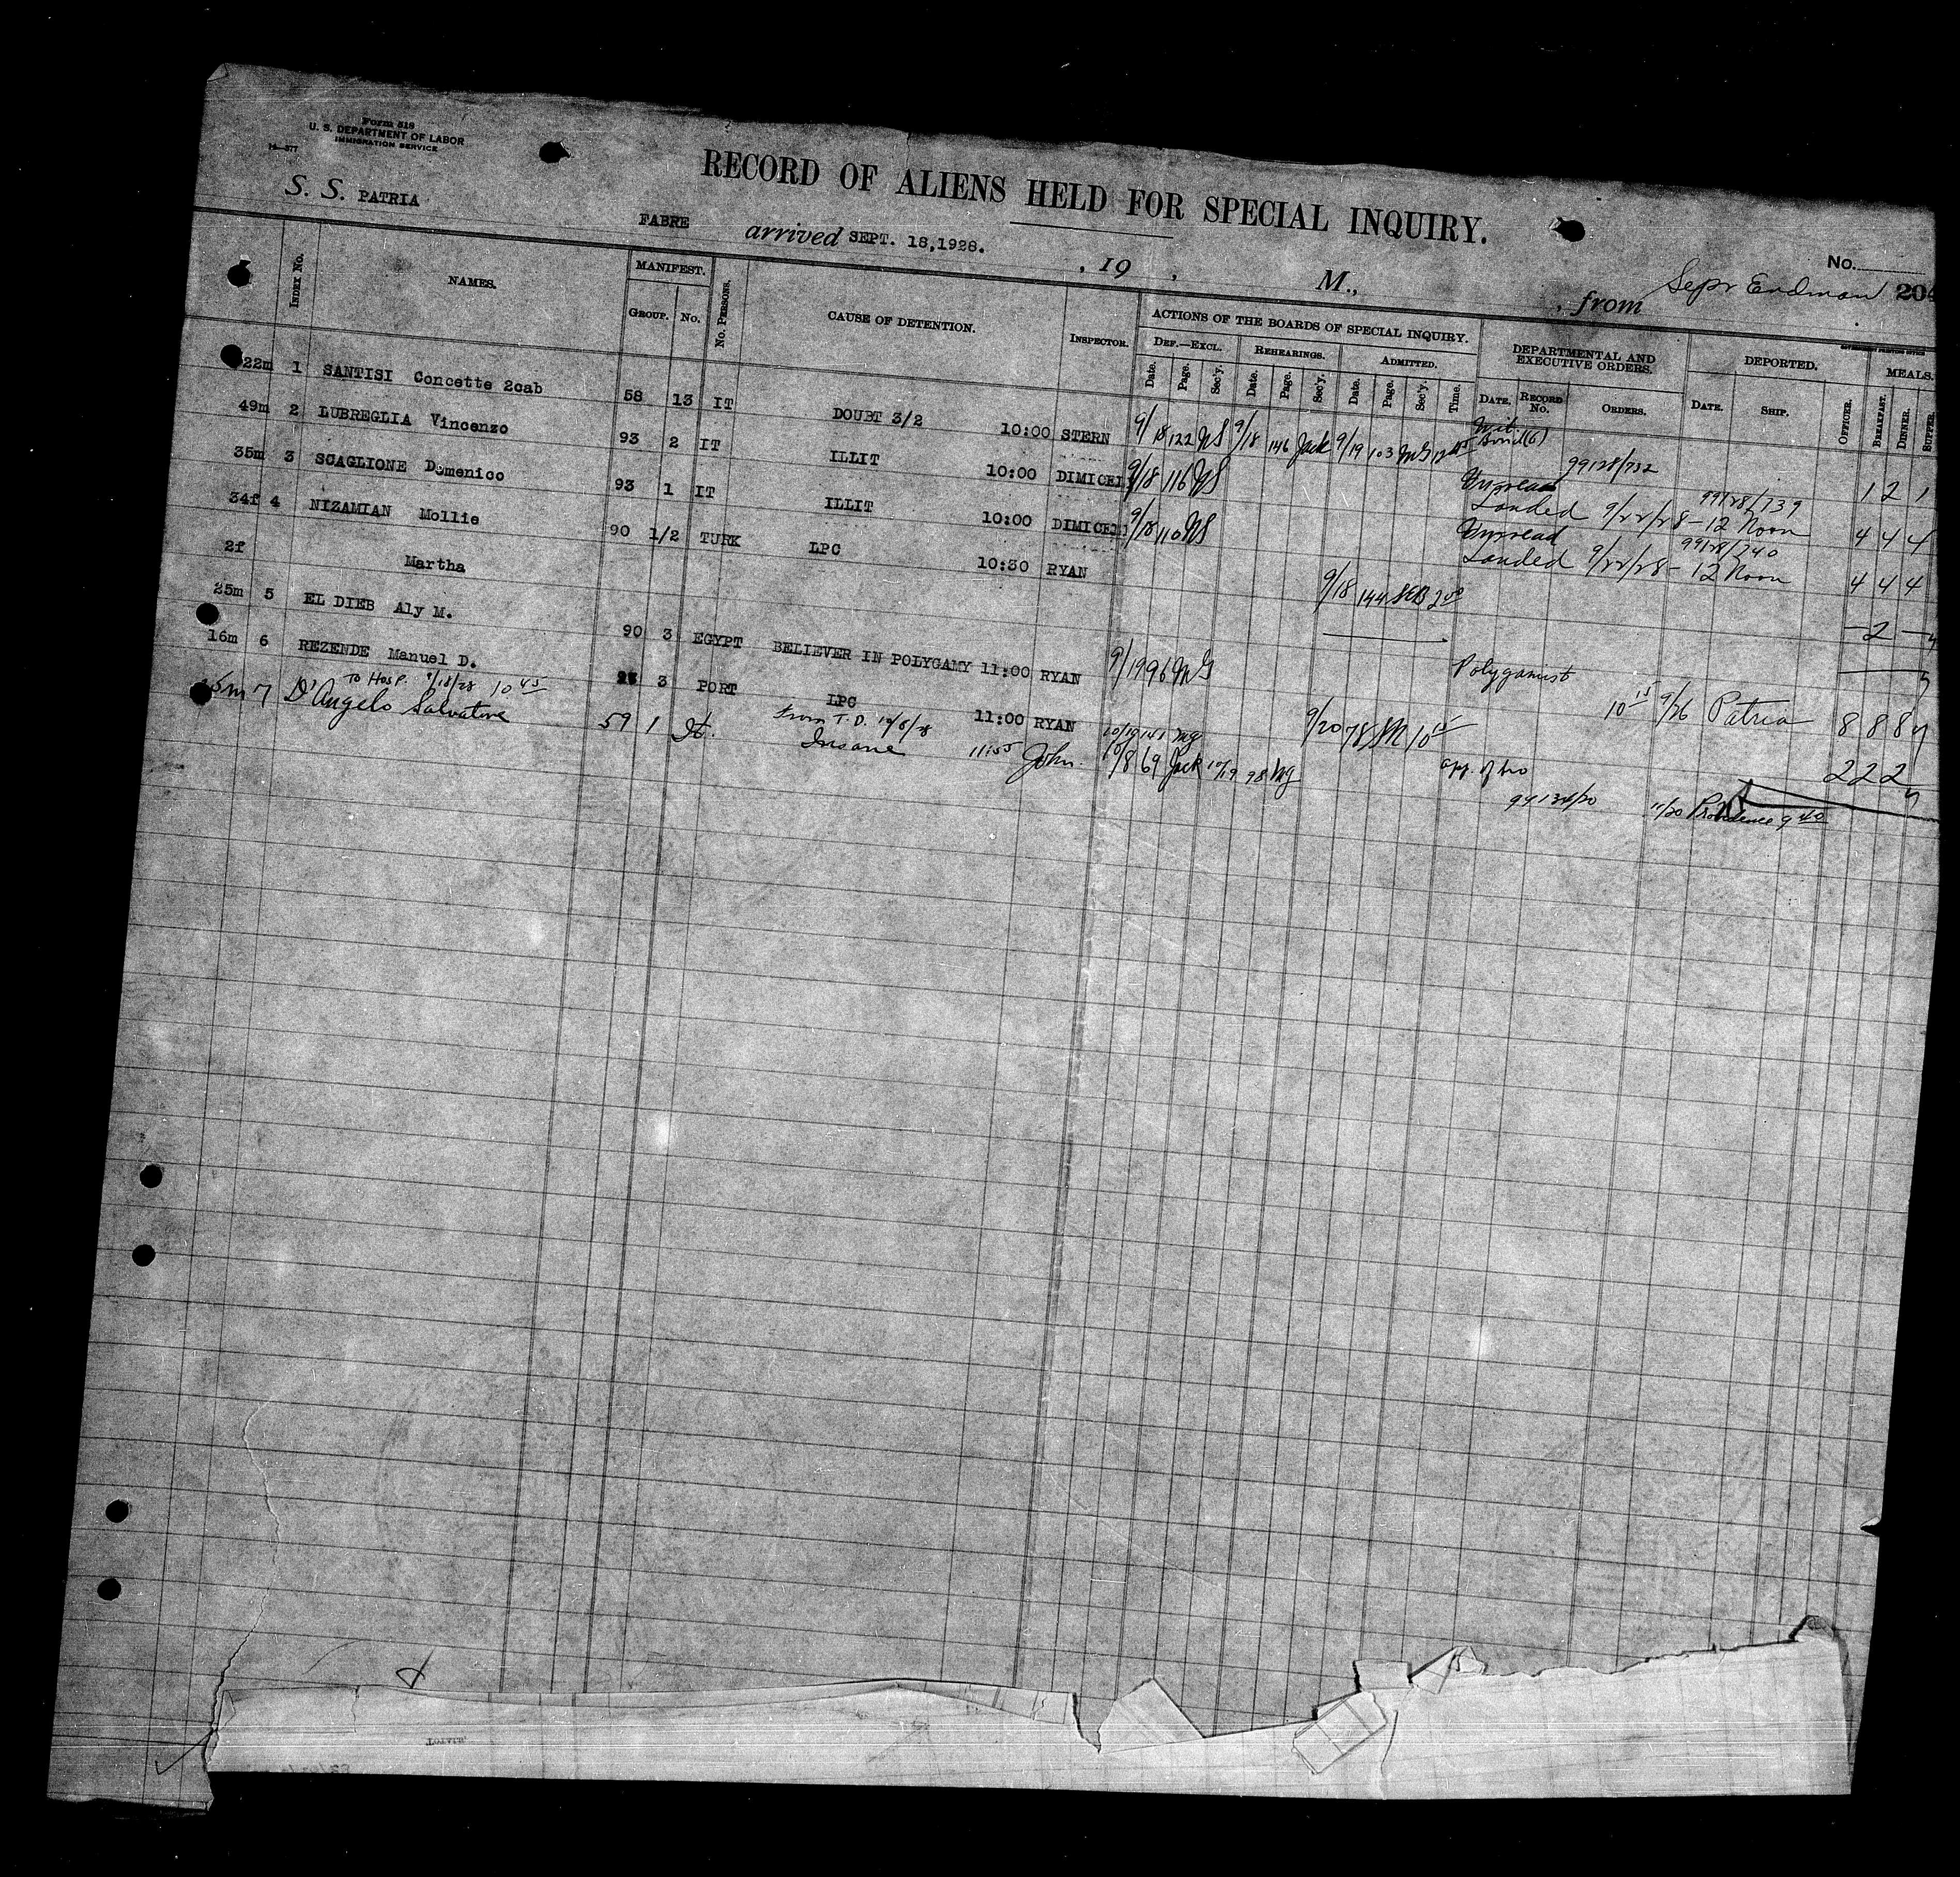 Form 518
U. S. DEPARTMENT OF LABOR
IMMIGRATION SERVICE
14—577
RECORD OF ALIENS HELD FOR SPECIAL INQUIRY.
S. S. PATRIA FABRE arrived SEPT. 18,1928. , 19 , M., , from
No. 204
INDEX No. NAMES. MANIFEST. GROUP. No. No. PERSONS. CAUSE OF DETENTION. INSPECTOR. ACTIONS OF THE BOARDS OF SPECIAL INQUIRY. DEPARTMENTAL AND EXECUTIVE ORDERS. DEPORTED. MEALS.
DEF.—EXCL. REHEARINGS. ADMITTED.
Date. Page. Sec'y. Date. Page. Sec'y. Date. Page. Sec'y. Time. DATE. RECORD No. ORDERS. DATE. SHIP. OFFICER. BREAKFAST. DINNER. SUPPER.
22m 1 SANTISI Concette 2cab 58 13 IT DOUBT 3/2 10:00 STERN 9/18 122 NS 9/18 146 Jack 9/19 103 1 2 1
99128/732
49m 2 LUBREGLIA Vincenzo 93 2 IT ILLIT 10:00 DIMICELI 9/18 116 NS 99128/739
Landed 9/22/28 - 12 Noon 4 4 4
35m 3 SCAGLIONE Domenico 93 1 IT ILLIT 10:00 DIMICELI 9/18 110 NS 99128/740
Landed 9/22/28 - 12 Noon 4 4 4
34f 4 NIZAMIAN Mollie 90 1/2 TURK LPC 10:30 RYAN 9/18 144 SEB 2 00 — 2 —
2f Martha
25m 5 EL DIEB Aly M. 90 3 EGYPT BELIEVER IN POLYGAMY 11:00 RYAN 9/19 96 MG Polygamist 10 15 9/26 Patria 8 8 8
16m 6 REZENDE Manuel D. 3 PORT LPC 11:00 RYAN 9/20 78 10 15 2 2 2
To Hosp. 9/18/28 10 45 From T.D. 10/8/28 10/10 141 mg
15m 7 D'Angelo Salvatore 59 1 It. Insane 11:55 John. 10/8 69 Jack 10/19 98 mg
11/20 Providence 9 40